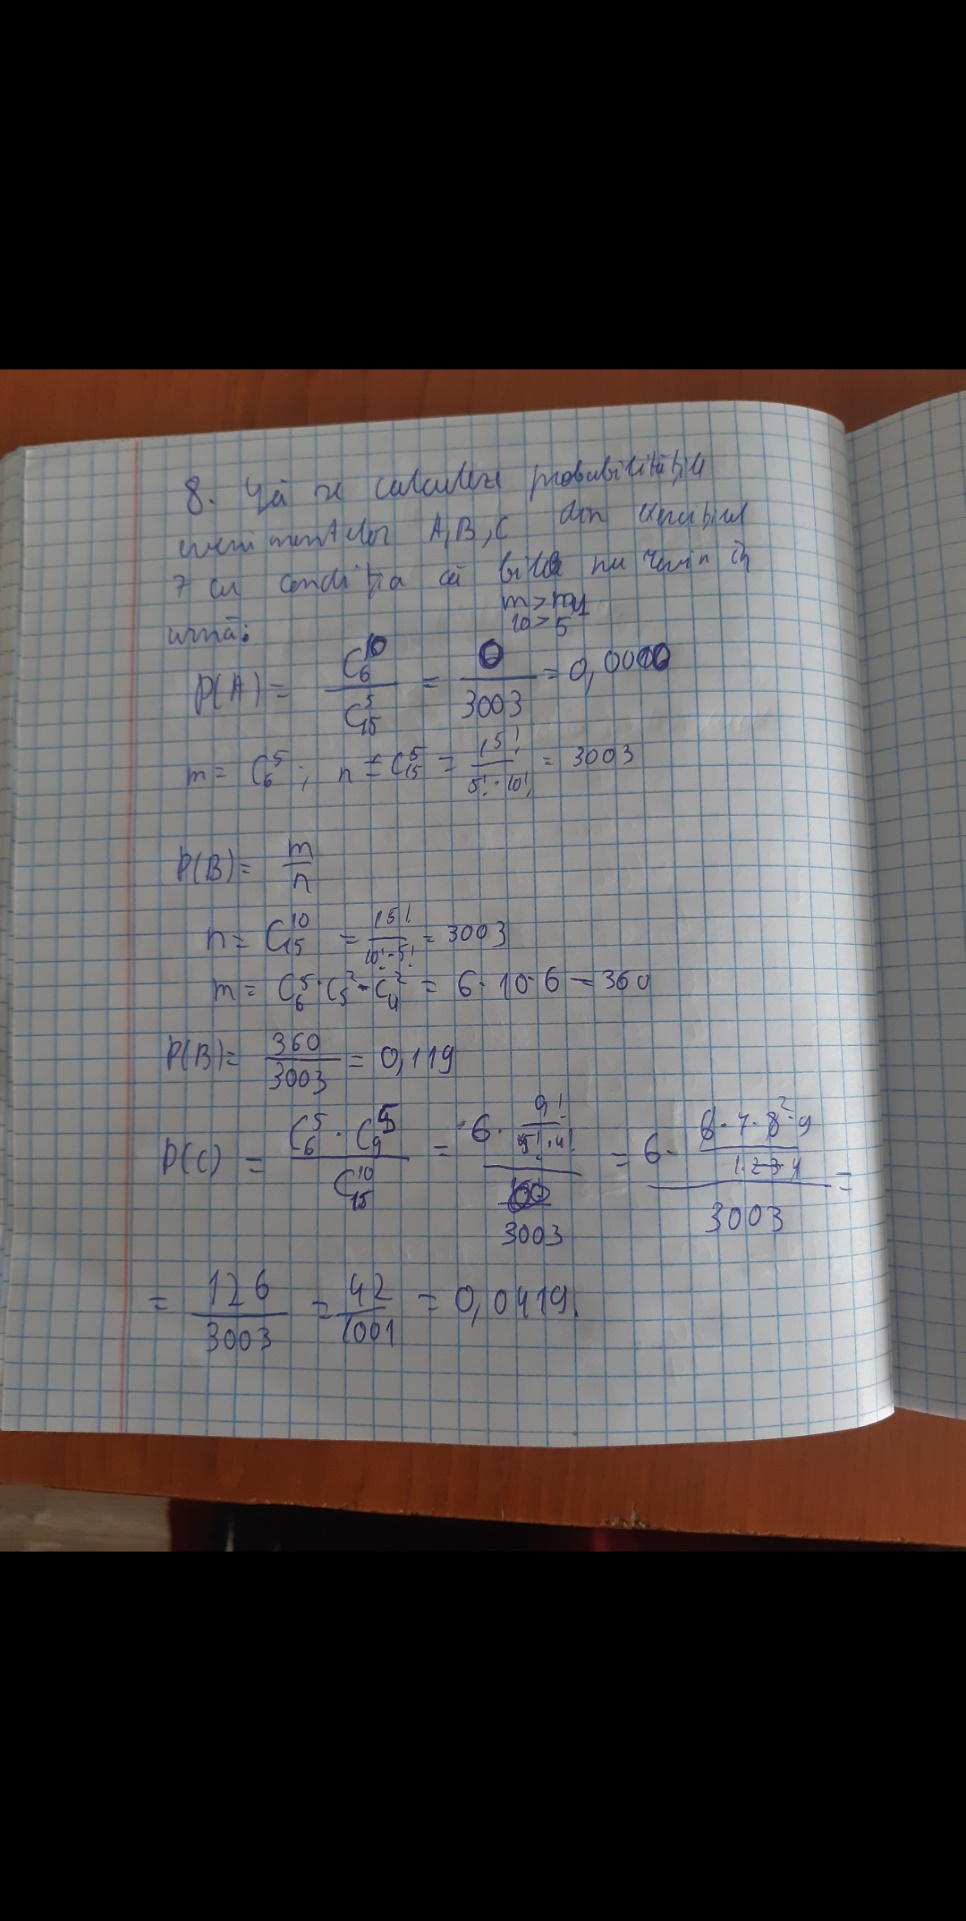 8. Să se calculeze probabilitățile
evenimentelor A, B, C din exercițiul
7 cu condiția că bilele nu revin în
urnă:
m > n
10 > 5
P(A) = C₆¹⁰ / C₁₅⁵ = 0 / 3003 = 0,0000
m = C₆⁵; n = C₁₅⁵ = 15! / 5!·10! = 3003
P(B) = m / n
n = C₁₅¹⁰ = 15! / 10!·5! = 3003
m = C₆⁵·C₅²·C₄² = 6·10·6 = 360
P(B) = 360 / 3003 = 0,119
P(C) = C₆⁵·C₉⁵ / C₁₅¹⁰ = 6· 9! / 5!·4! / 3003 = 6· 6·7·8²·9 / 1·2·3·4 / 3003 =
= 126 / 3003 = 42 / 1001 = 0,0419.